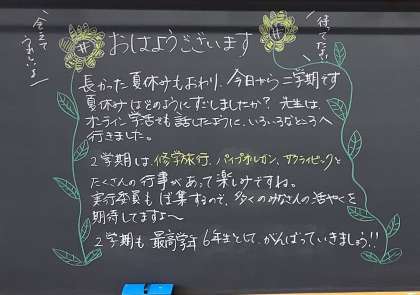 会えてうれしいよ
待てたよ
おはようございます
長かった夏休みもおわり、今日から二学期です
夏休みはどのようにすごしましたか？先生は、
オンライン学活でも話したように、いろいろなところへ
行きました。
2学期は、修学旅行、パイプオルガン、アクアリンピックと
たくさんの行事があって楽しみですね。
実行委員もぼ集するので、多くのみなさんの活やくを
期待してますよ〜
2学期も最高学年6年生として、がんばっていきましょう!!